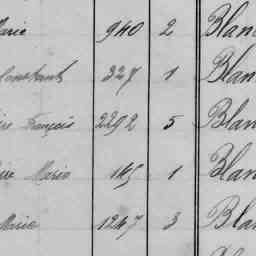 Marie 940 2 Blan
Constant 327 1 Blan
François 2292 5 Blan
Marie 145 1 Blan
Marie 1247 3 Blan